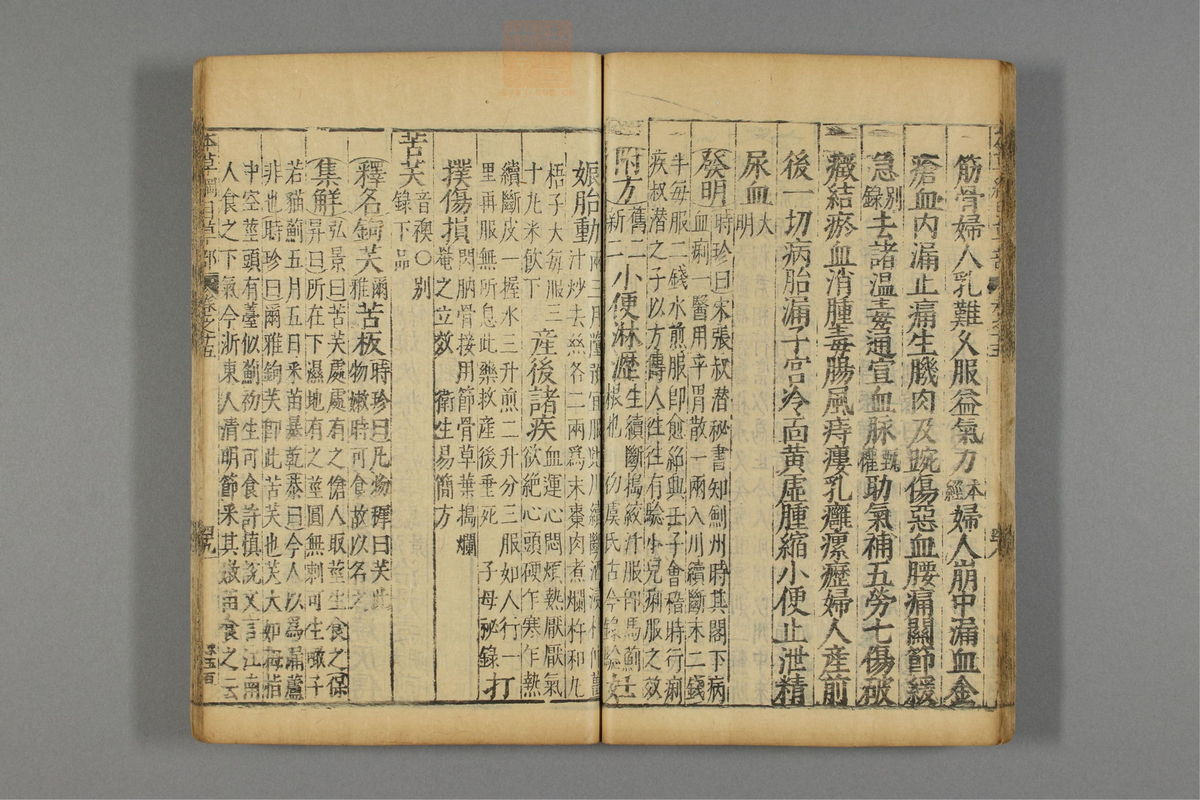 筋骨婦人乳難久服益氣力本經婦人崩中漏血金
瘡血內漏止痛生肌肉及踠傷惡血腰痛關節緩
急別錄去諸溫毒通宣血脉甄權助氣補五勞七傷破
癥結瘀血消腫毒腸風痔瘻乳癰瘰癧婦人產前
後一切病胎漏子宮冷面黃虛腫縮小便止泄精
尿血大明
發明時珍曰宋張叔潜秘書知劍州時其閣下病
血痢一醫用平胃散一兩入川續斷末二錢
半每服二錢水煎服即愈紹興壬子會稽時行痢
疾叔潜之子以方傳人往往有驗小兒痢服之效
附方舊二新二小便淋瀝生續斷搗絞汁服即馬薊
根也 古今錄驗
娠胎動
汁炒去絲各二兩爲末棗肉煮爛杵和丸
梧子大每服三
十丸米飲下 產後諸疾血運心悶煩熱厭厭氣
欲絕心頭硬乍寒乍熱
續斷皮一握水三升煎二升分三服如人行一
里再服無所忌此藥救產後垂死 子母秘錄打
撲傷損閃肭骨接用節骨草葉搗爛
罨之立效 衛生易簡方
苦芺音襖○別錄下品
釋名鉤芺爾雅苦板時珍曰凡物穉曰芺此
物嫩時可食故以名之
集解弘景曰苦芺處處有之傖人取莖生食之保
昇曰所在下濕地有之莖圓無刺可生噉子
若猫薊五月五日采苗暴乾恭曰今人以爲漏蘆
非也時珍曰爾雅鉤芺即此苦芺也芺大如拇指
中空莖頭有薹似薊初生可食許慎說文言江南
人食之下氣今浙東人清明節采其嫩苗食之云